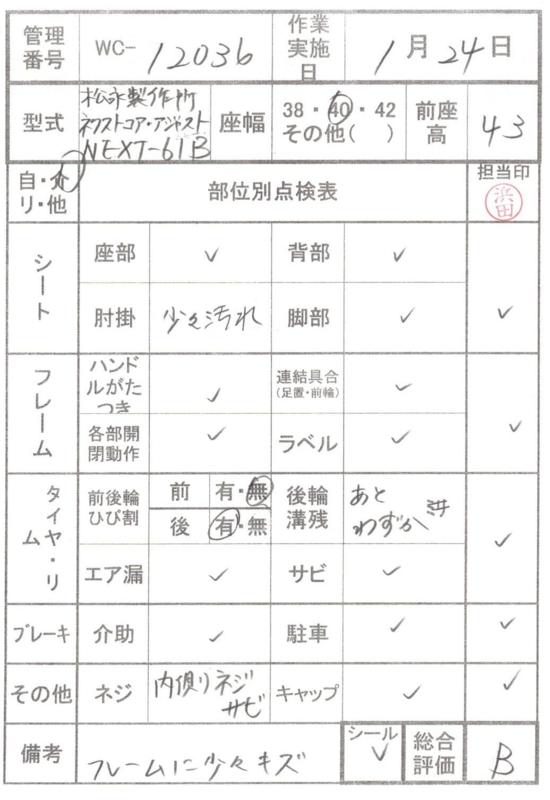 管理番号 WC-12036 作業実施日 1月24日
型式 松永製作所 ネクストコア・アジャスト NEXT-61B 座幅 38・40・42 その他( ) 前座高 43
自・介 リ・他 部位別点検表 担当印 浜田
シート 座部 ✓ 背部 ✓
肘掛 少々汚れ 脚部 ✓ ✓
フレーム ハンドルがたつき ✓ 連結具合(足置・前輪) ✓
各部開閉動作 ✓ ラベル ✓ ✓
タイヤ・リム 前後輪ひび割 前 有・無 後輪溝残 あとわずか
後 有・無
エア漏 ✓ サビ ✓ ✓
ブレーキ 介助 ✓ 駐車 ✓ ✓
その他 ネジ 内側りネジサビ キャップ ✓ ✓
備考 フレームに少々キズ シール ✓ 総合評価 B